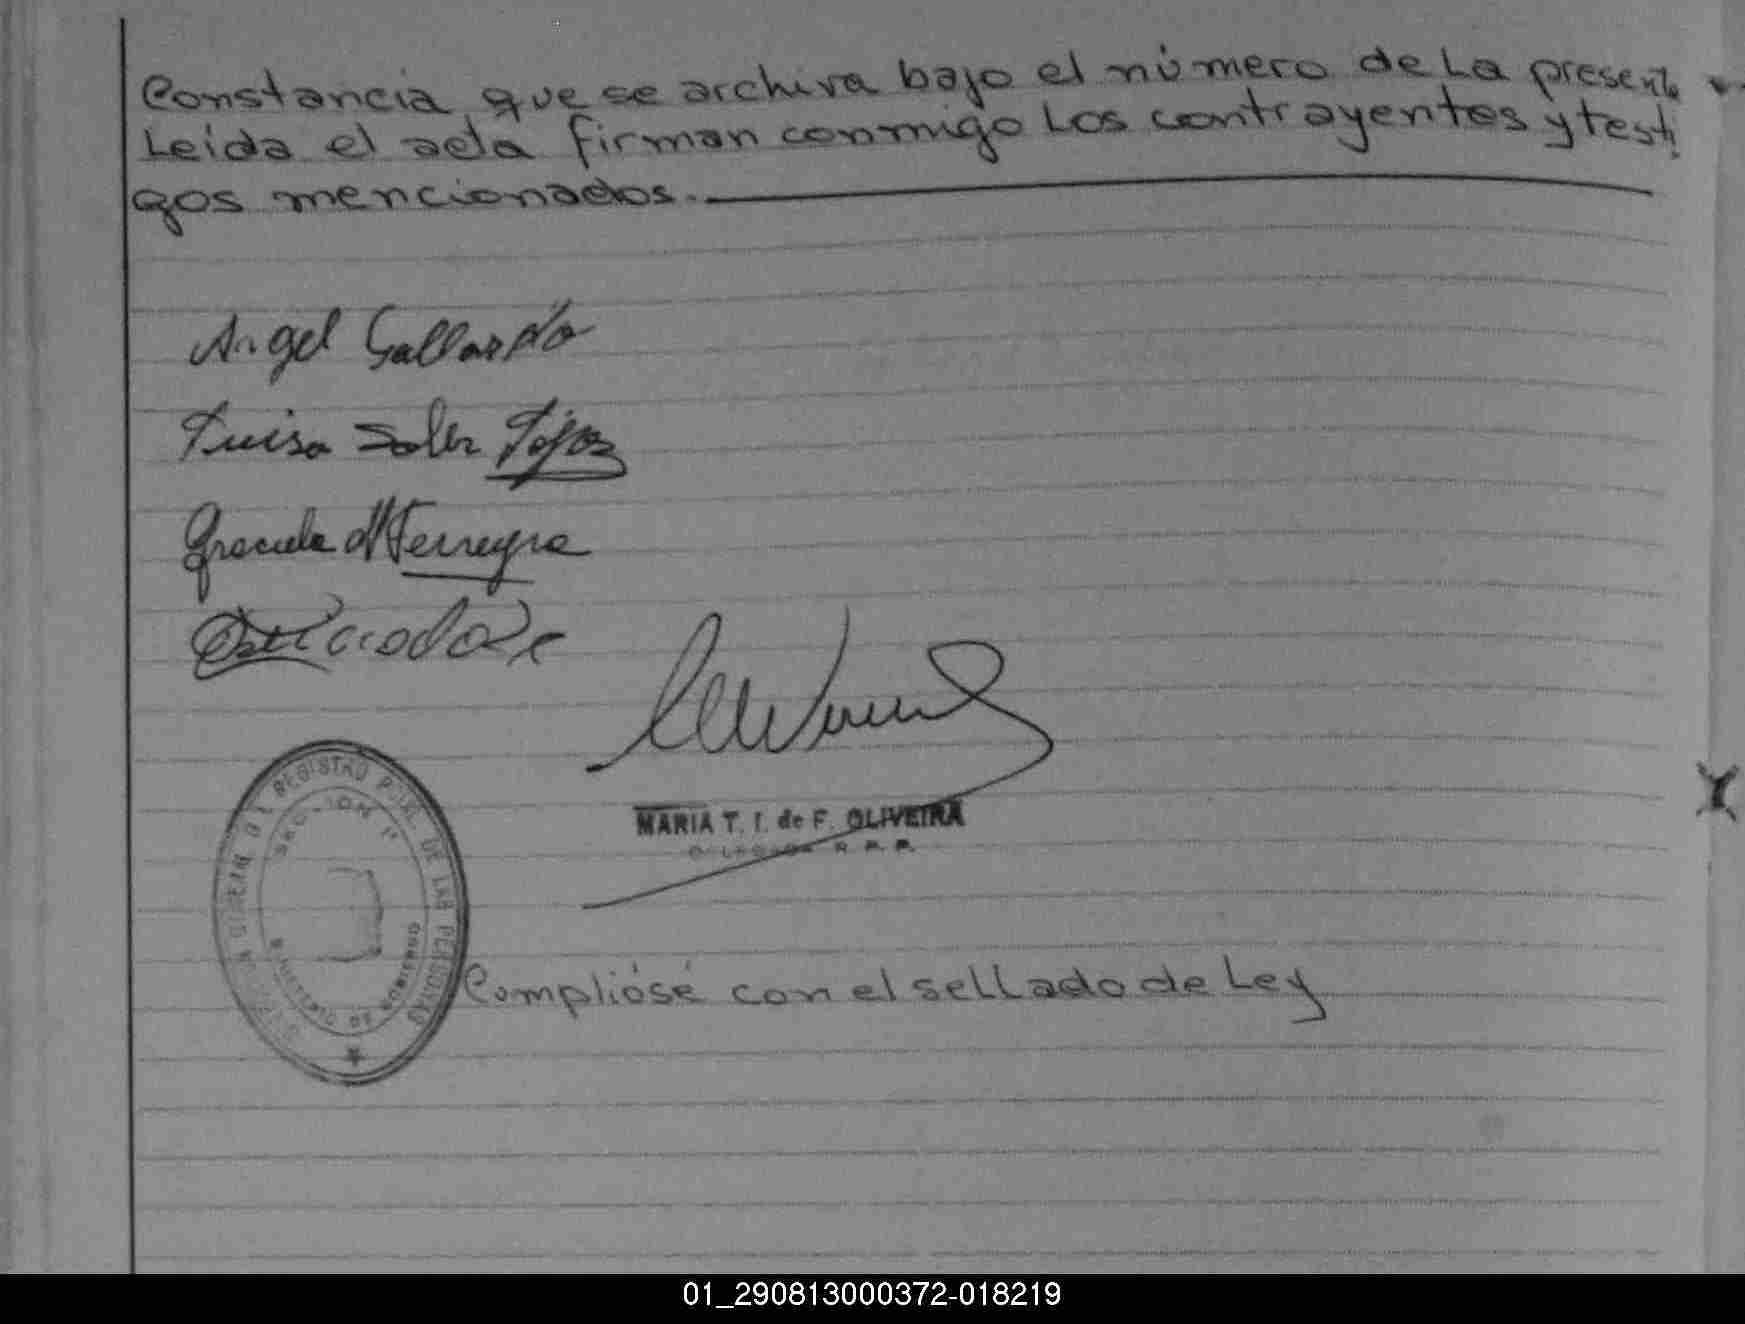 Constancia que se archiva bajo el número de La presente
Leída el acta firman conmigo Los contrayentes y testi
gos mencionados.
Angel Gallardo
Luisa Soler
Graciela Ferreyra
MARIA T. I. de F. OLIVEIRA
R. P. P.
DIRECCION GRAL. DEL REGISTRO PCIAL. DE LAS PERSONAS
SECCION 1ª
MINISTERIO DE GOBIERNO
Complióse con el seLLado de Ley
01_290813000372-018219